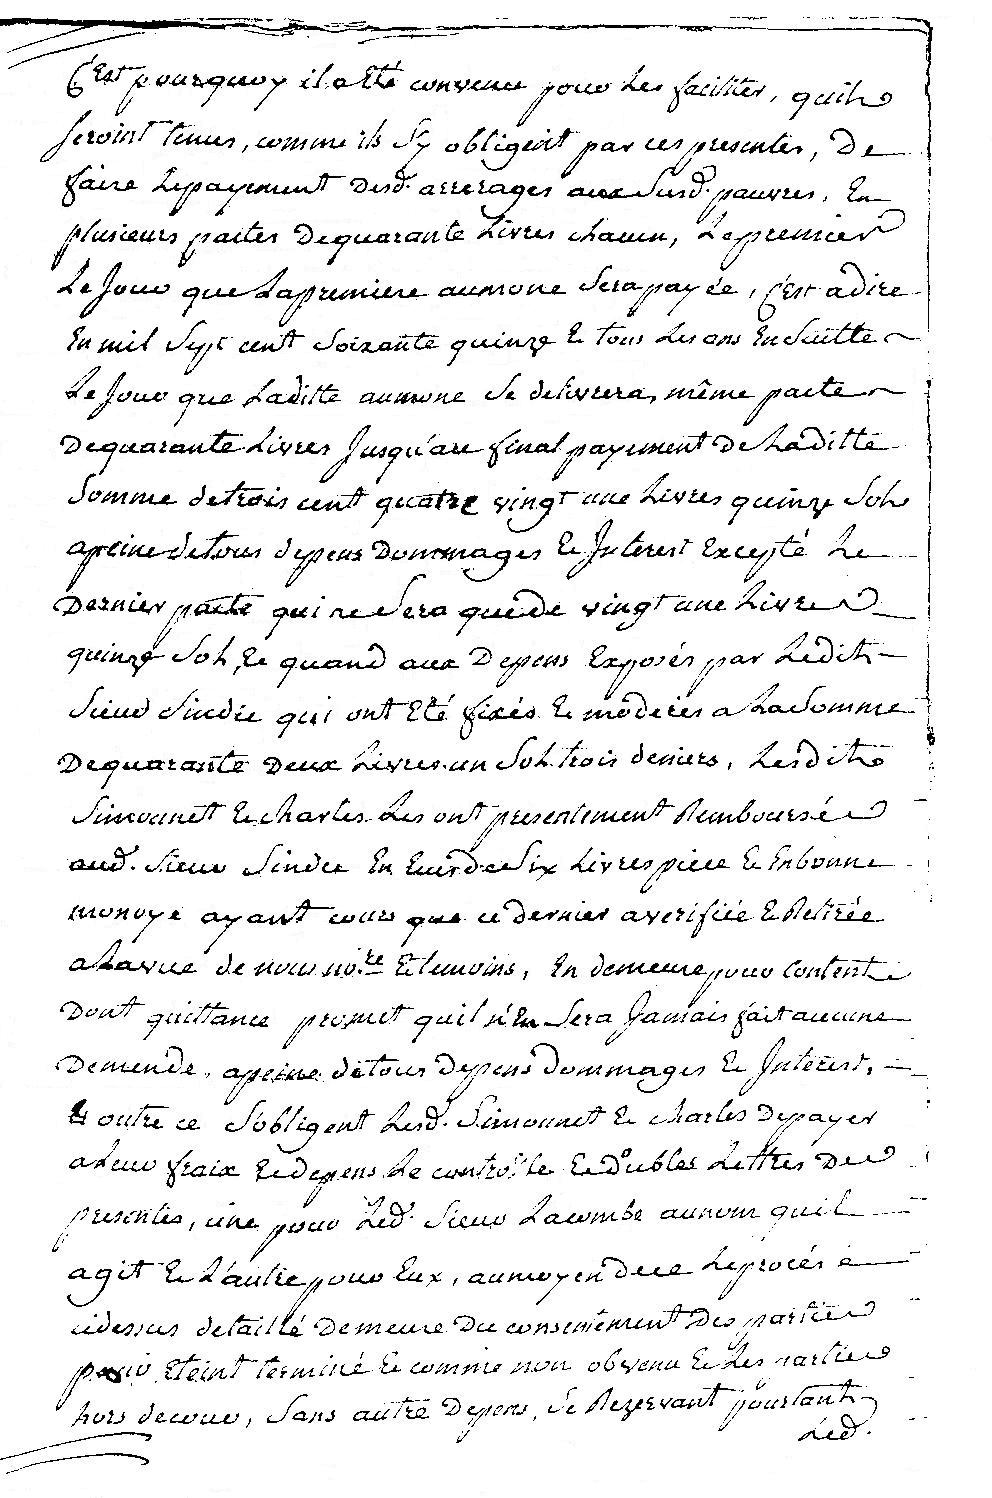 C'est pourquoy il a Eté convenu pour Les faciliter, quils
seroint tenus, comme ils S'y obligent par ces presentes, De
faire Le payement Desd. arrerages aux Susd. pauvres, En
plusieurs pactes De quarante Livres chacun, Le premier
Le Jour que La premiere aumone Sera payée, C'est a dire
En mil Sept cent Soixante quinze Et tous Les ans En Suitte
Le Jour que Laditte aumone Se delivrera, même pacte
De quarante Livres Jusqu'au final payement De Laditte
Somme de trois cent quatre vingt une Livres quinze Sols
a peine de tous depens Dommages Et Interest Excepté Le
Dernier pacte qui ne Sera que de vingt une Livre
quinze Sols, Et quand aux Depens Exposés par Ledit
Sieur Sindic qui ont Eté fixés Et moderés a La Somme
De quarante Deux Livres un Sol trois deniers, Lesdits
Simounet Et Charles Les ont presentement Remboursée
aud. Sieur Sindic En Ecus de Six Livres piece Et En bonne
monoye ayant cours que ce dernier a verifiée Et Retirée
a La vue de nous no.re Et temoins, En demeure pour Content
Dont quittance promet quil n'En Sera Jamais fait aucune
Demende, a peine de tous Depens Dommages Et Interest,
Et outre ce S'obligent Lesd. Simounet Et Charles De payer
a Leur fraix Et depens Le controlle Et doubles Lettres De
presentes, une pour Led. Sieur Lacombe au nom quil
agit Et L'autre pour Eux, au moyen de ce Le procés
cidessus detaillé Demeure Du consentement Des parties
pour Eteint terminé Et comme non obvenu Et Les parties
hors de cour, Sans autre Depens, Se Rezervant pourtant
Led.